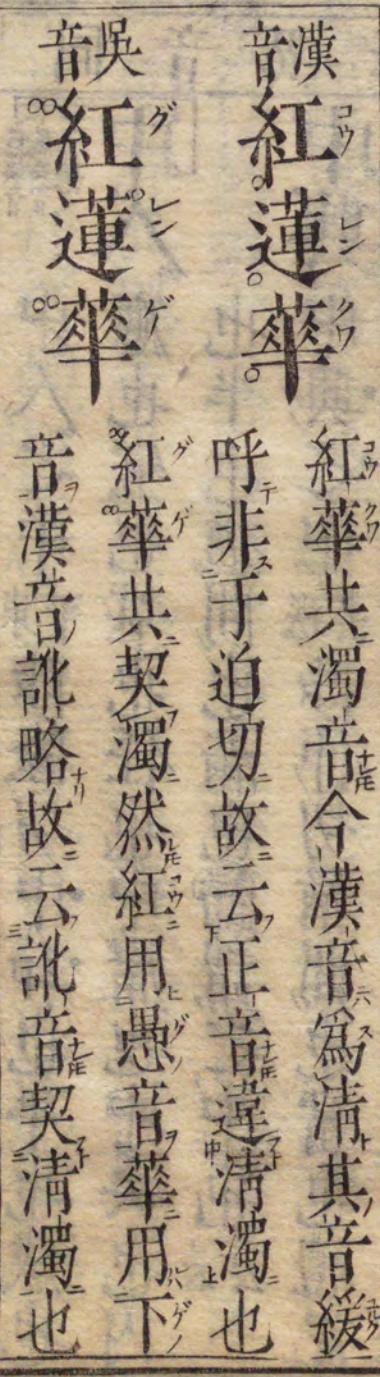 漢音
紅蓮華
コウ レン クワ
紅華共濁音今漢音為清其音緩
呼非于迫切故云正音違清濁也
吳音
紅蓮華
グ レン ゲ
紅華共契濁然紅用愚音華用下
音漢音訛略故云訛音契清濁也